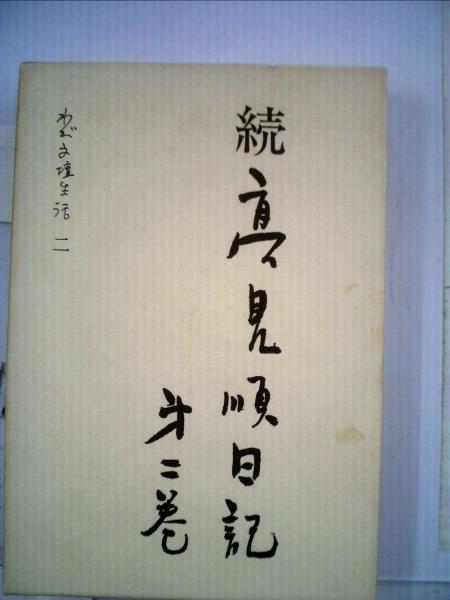 続 高見順日記
第二巻
わが文壇生活 二